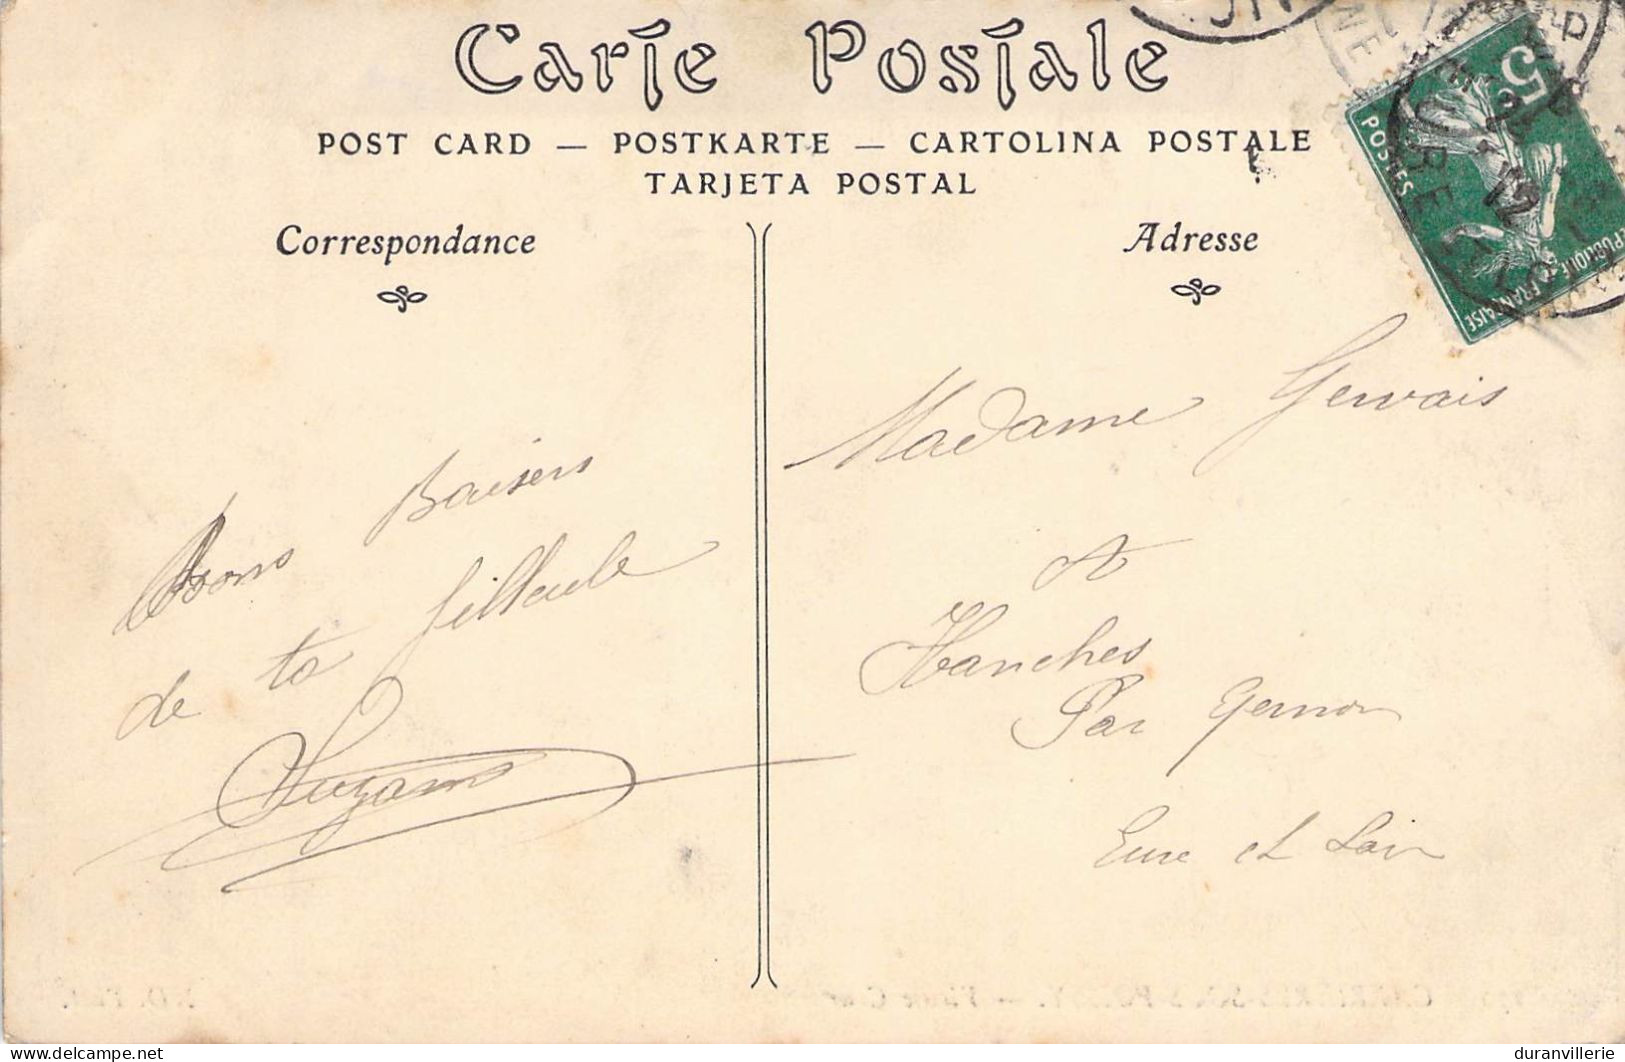 Carte Postale
POST CARD — POSTKARTE — CARTOLINA POSTALE
TARJETA POSTAL
Correspondance
Adresse
5c
POSTES
REPUBLIQUE FRANÇAISE
Bons Baisers
de ta filleule
Suzanne
Madame Gervais
A
Hanches
Par Gernon
Eure et Loir
delcampe.net
duranvillerie